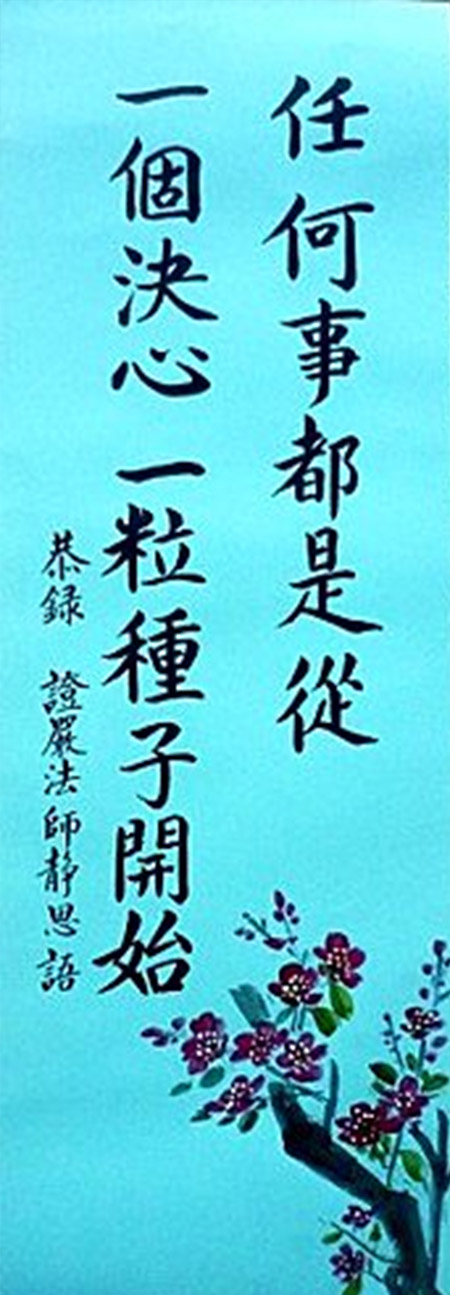 任何事都是從
一個決心一粒種子開始
恭録 證嚴法師靜思語